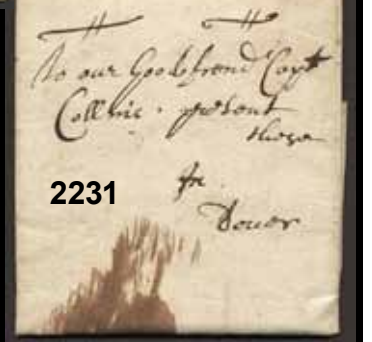 To our Good frend Capt
Collins . present
these
In
2231
Dover